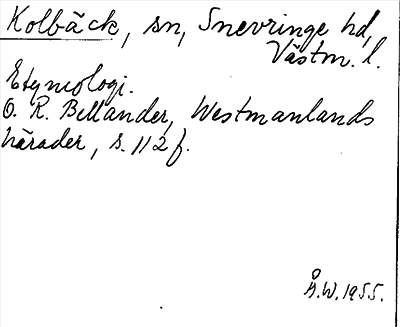 Kolbäck, sn, Snevringe hd,
Västm. l.
Etymologi.
O. R. Bellander, Westmanlands
härader, s. 112 f.
Å.W. 1955.